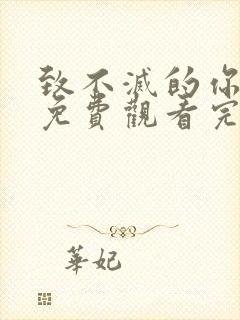 致不滅的你
免費觀看完
華妃